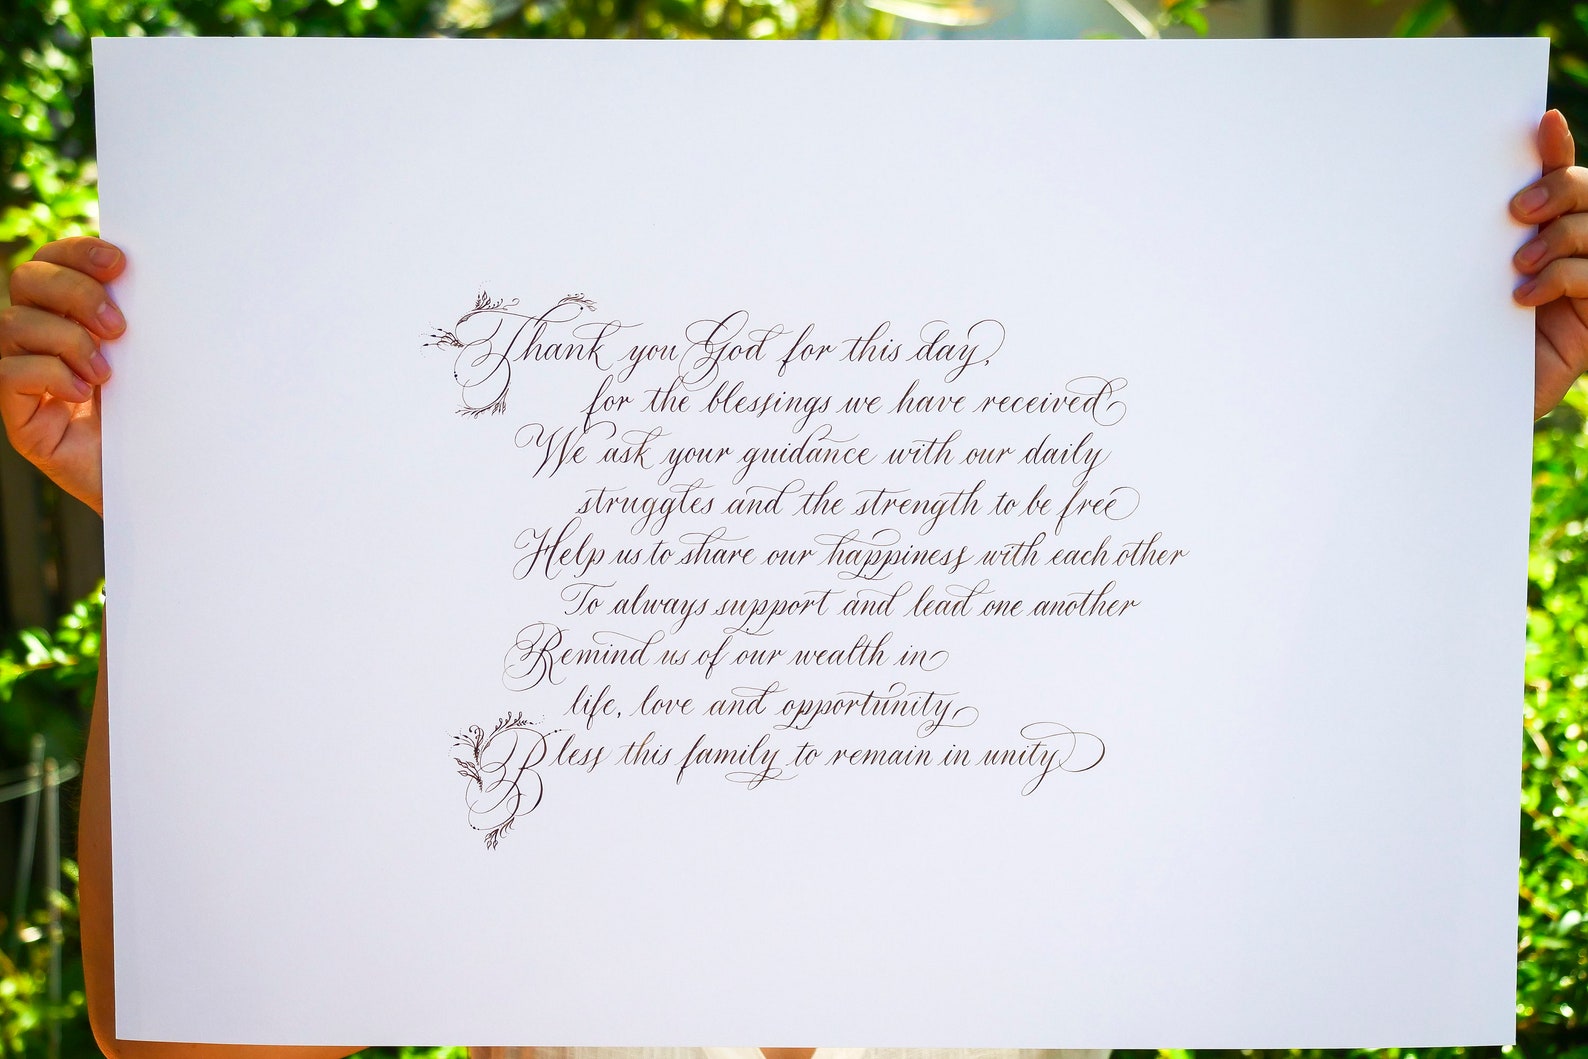 Thank you God for this day,
for the blessings we have received
We ask your guidance with our daily
struggles and the strength to be free
Help us to share our happiness with each other
To always support and lead one another
Remind us of our wealth in
life, love and opportunity
Bless this family to remain in unity